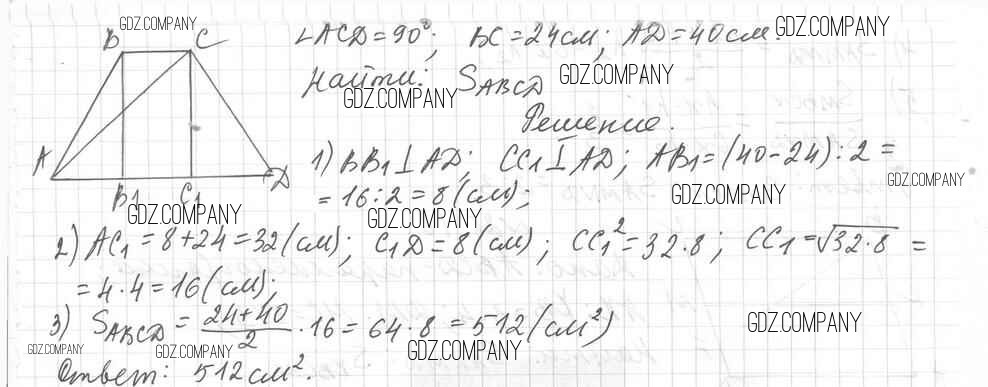 GDZ.COMPANY
B C ∠ACD = 90°; BC = 24 см; AD = 40 см. GDZ.COMPANY
Найти: S_ABCD GDZ.COMPANY
GDZ.COMPANY
Решение.
A D 1) BB₁ ⊥ AD; CC₁ ⊥ AD; AB₁ = (40 - 24) : 2 =
B₁ C₁ = 16 : 2 = 8 (см); GDZ.COMPANY GDZ.COMPANY
GDZ.COMPANY GDZ.COMPANY
2) AC₁ = 8 + 24 = 32 (см); C₁D = 8 (см); CC₁² = 32 · 8; CC₁ = √32 · 8 =
= 4 · 4 = 16 (см);
3) S_ABCD = (24 + 40)/2 · 16 = 64 · 8 = 512 (см²) GDZ.COMPANY
GDZ.COMPANY GDZ.COMPANY GDZ.COMPANY
Ответ: 512 см².